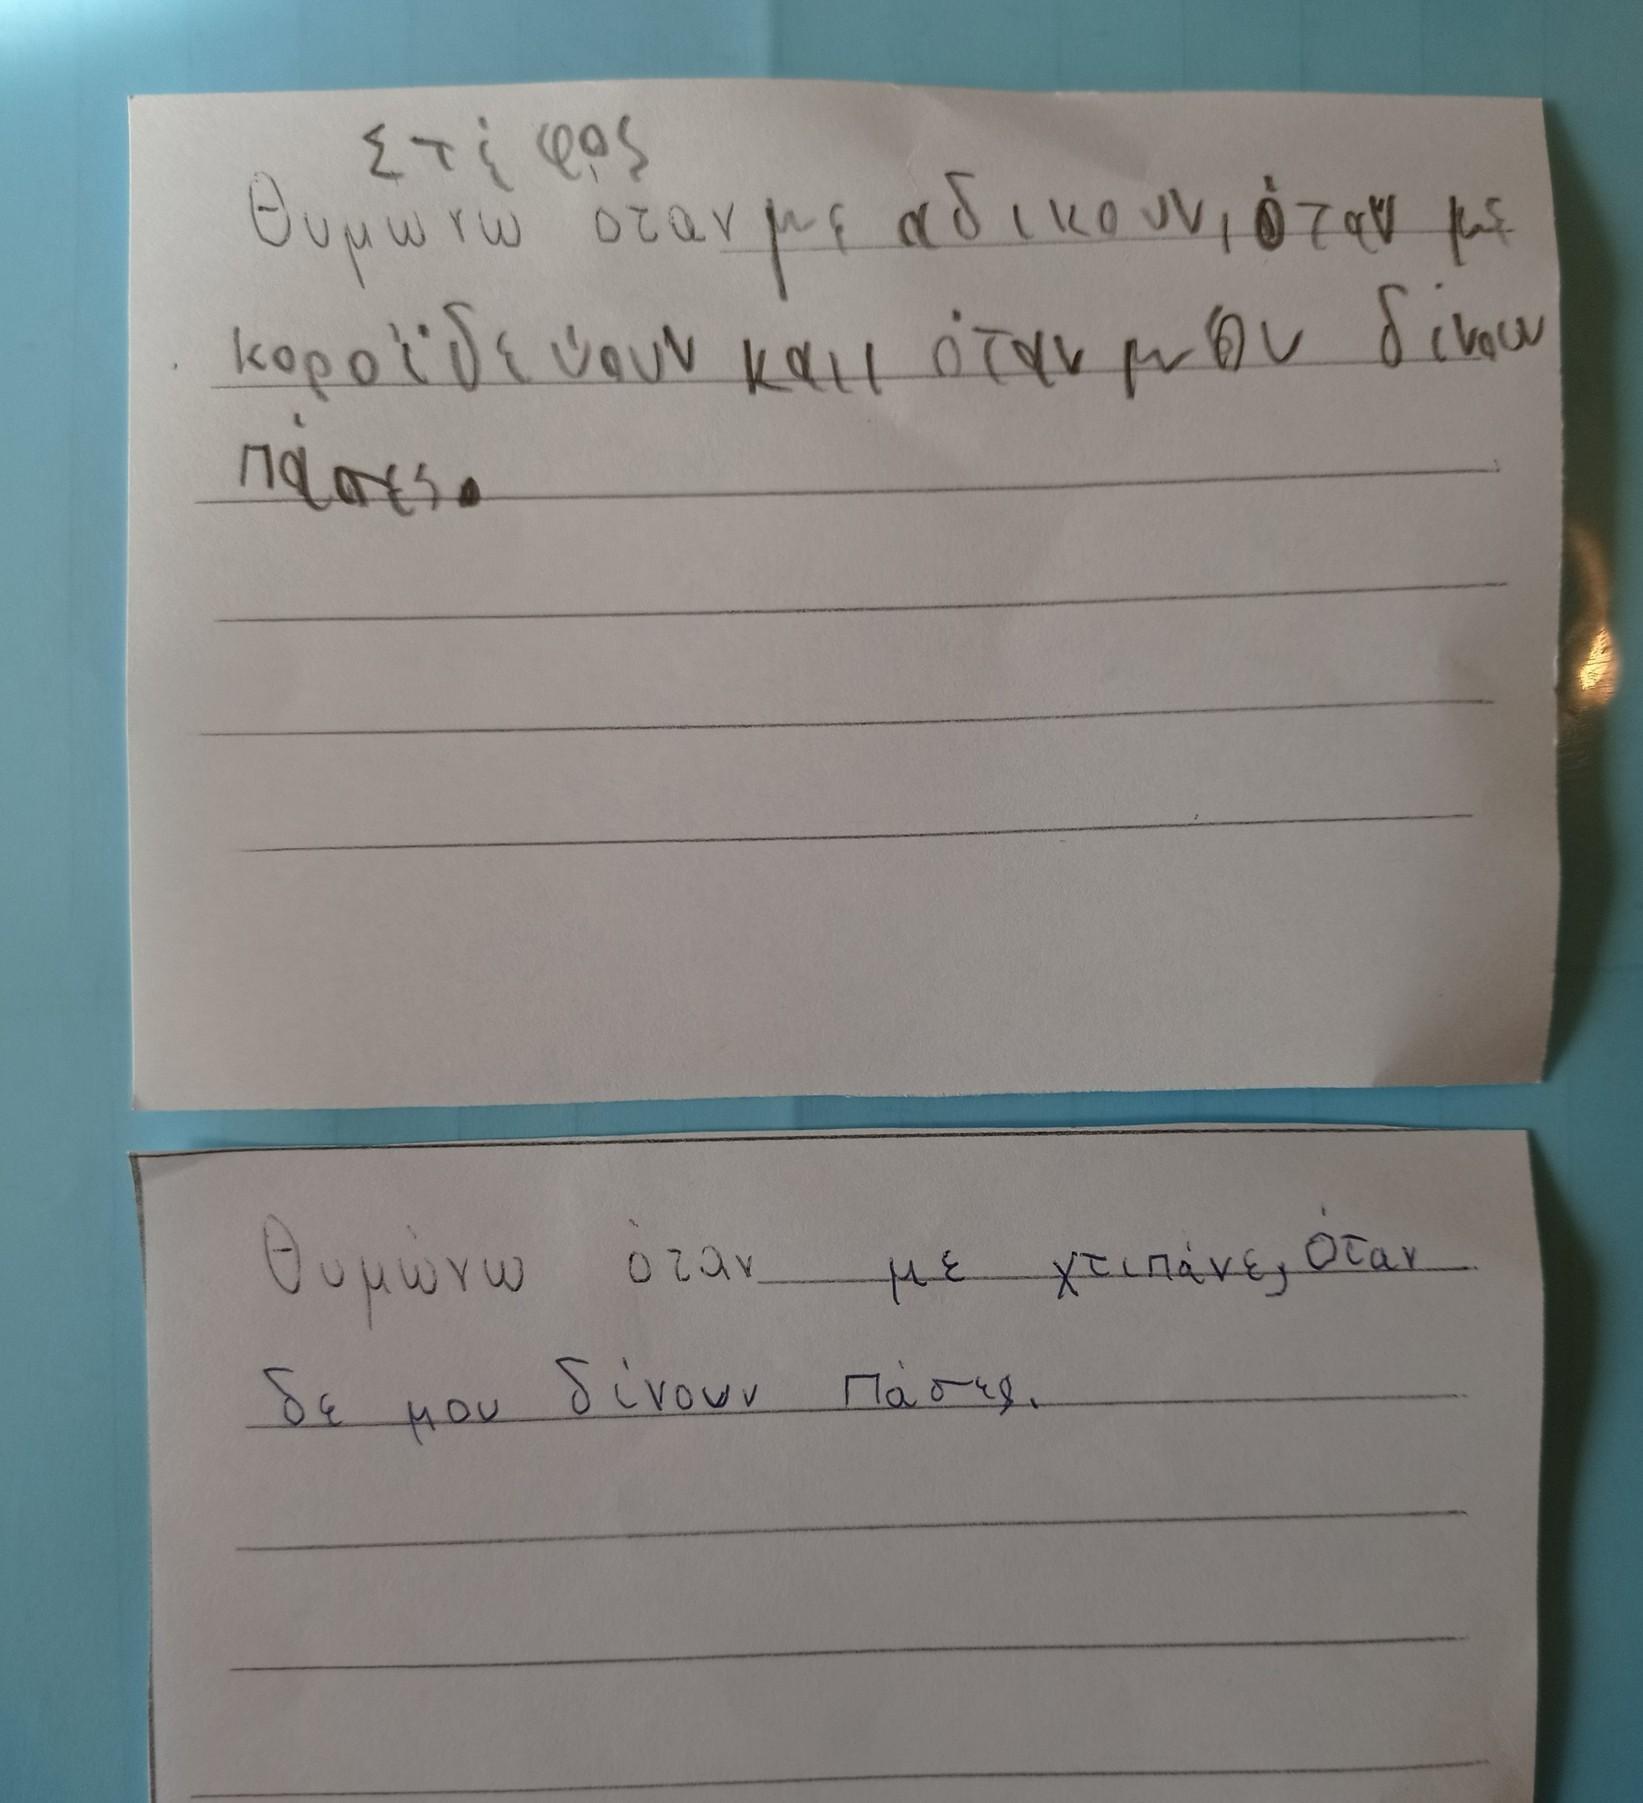 Στέφος
Θυμωνω οταν με αδικουν, όταν με
κοροϊδεύουν και όταν μου δίνουν
πάσες.
Θυμώνω όταν με χτιπάνε, όταν
δε μου δίνουν πάσες.